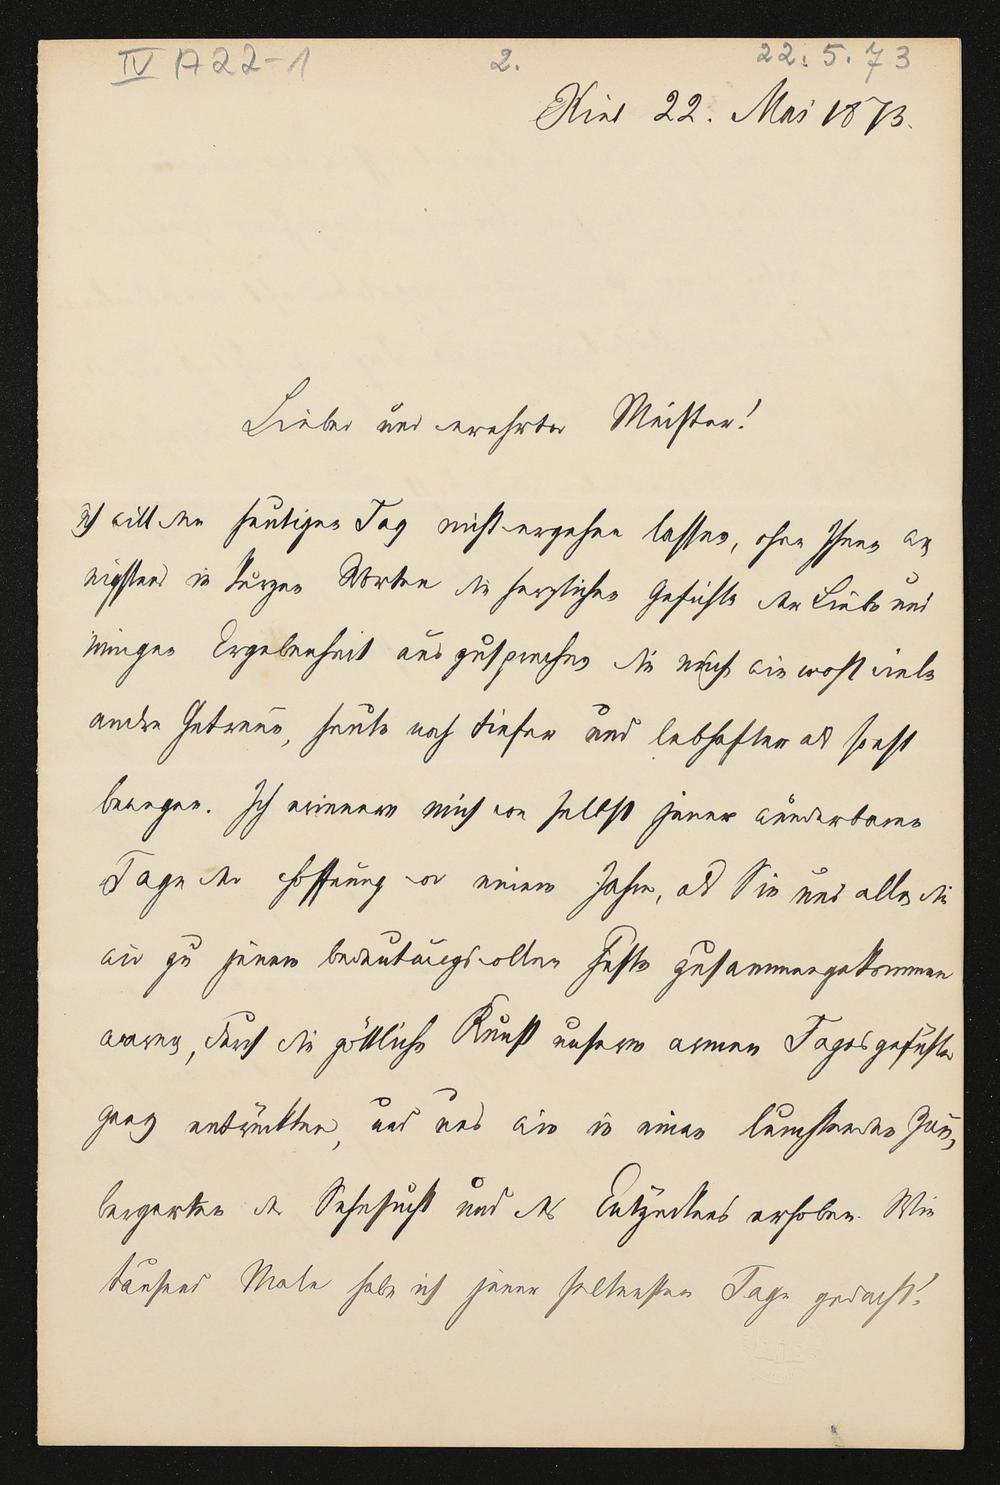 IV A22-1 2. 22.5.73
Kiel 22. Mai 1873.
Lieber und verehrter Meister!
ich will den heutigen Tag nicht vergehen lassen, ohne Ihnen we
nigstens in kurzen Worten die herzlichen Gefühle der Liebe und
innigen Ergebenheit auszusprechen die mich wie wohl viele
andre Getreue, heute noch tiefer und lebhafter als sonst
bewegen. Ich erinnere mich von selbst jener wunderbaren
Tage der Hoffnung vor einem Jahre, als Sie uns alle, die
wir zu jenem bedeutungsvollen Feste zusammengekommen
waren, durch die göttliche Kunst unserm armen Tagesgefühle
ganz entrückten, und uns wie in einen leuchtenden Zau-
bergarten der Sehnsucht und des Entzückens erhoben. Wie
tausend Male habe ich jener seltensten Tage gedacht!